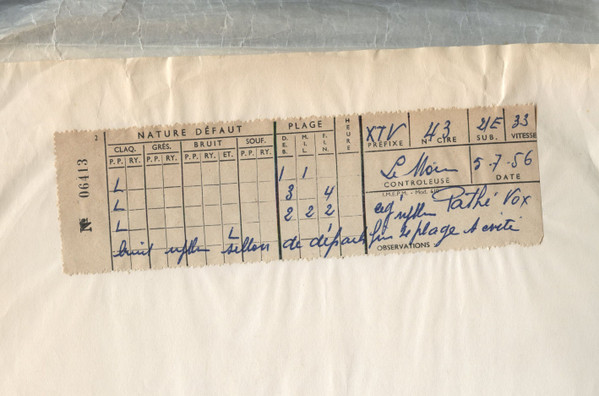 2 NATURE DÉFAUT PLAGE HEURE XTV 43 21E 33
CLAQ. GRÉS. BRUIT SOUF. DÉB. MIL. FIN. PRÉFIXE N° CIRE SUB. VITESSE
P.P. RY. P.P. RY. P.P. RY. ET. P.P. RY.
N° 06413
L 1 1 Le 5-7-56
CONTROLEUSE DATE
L 3 4
L 2 2 2 Pathé Vox
L 1
bruit sillon de départ fin plage A
OBSERVATIONS